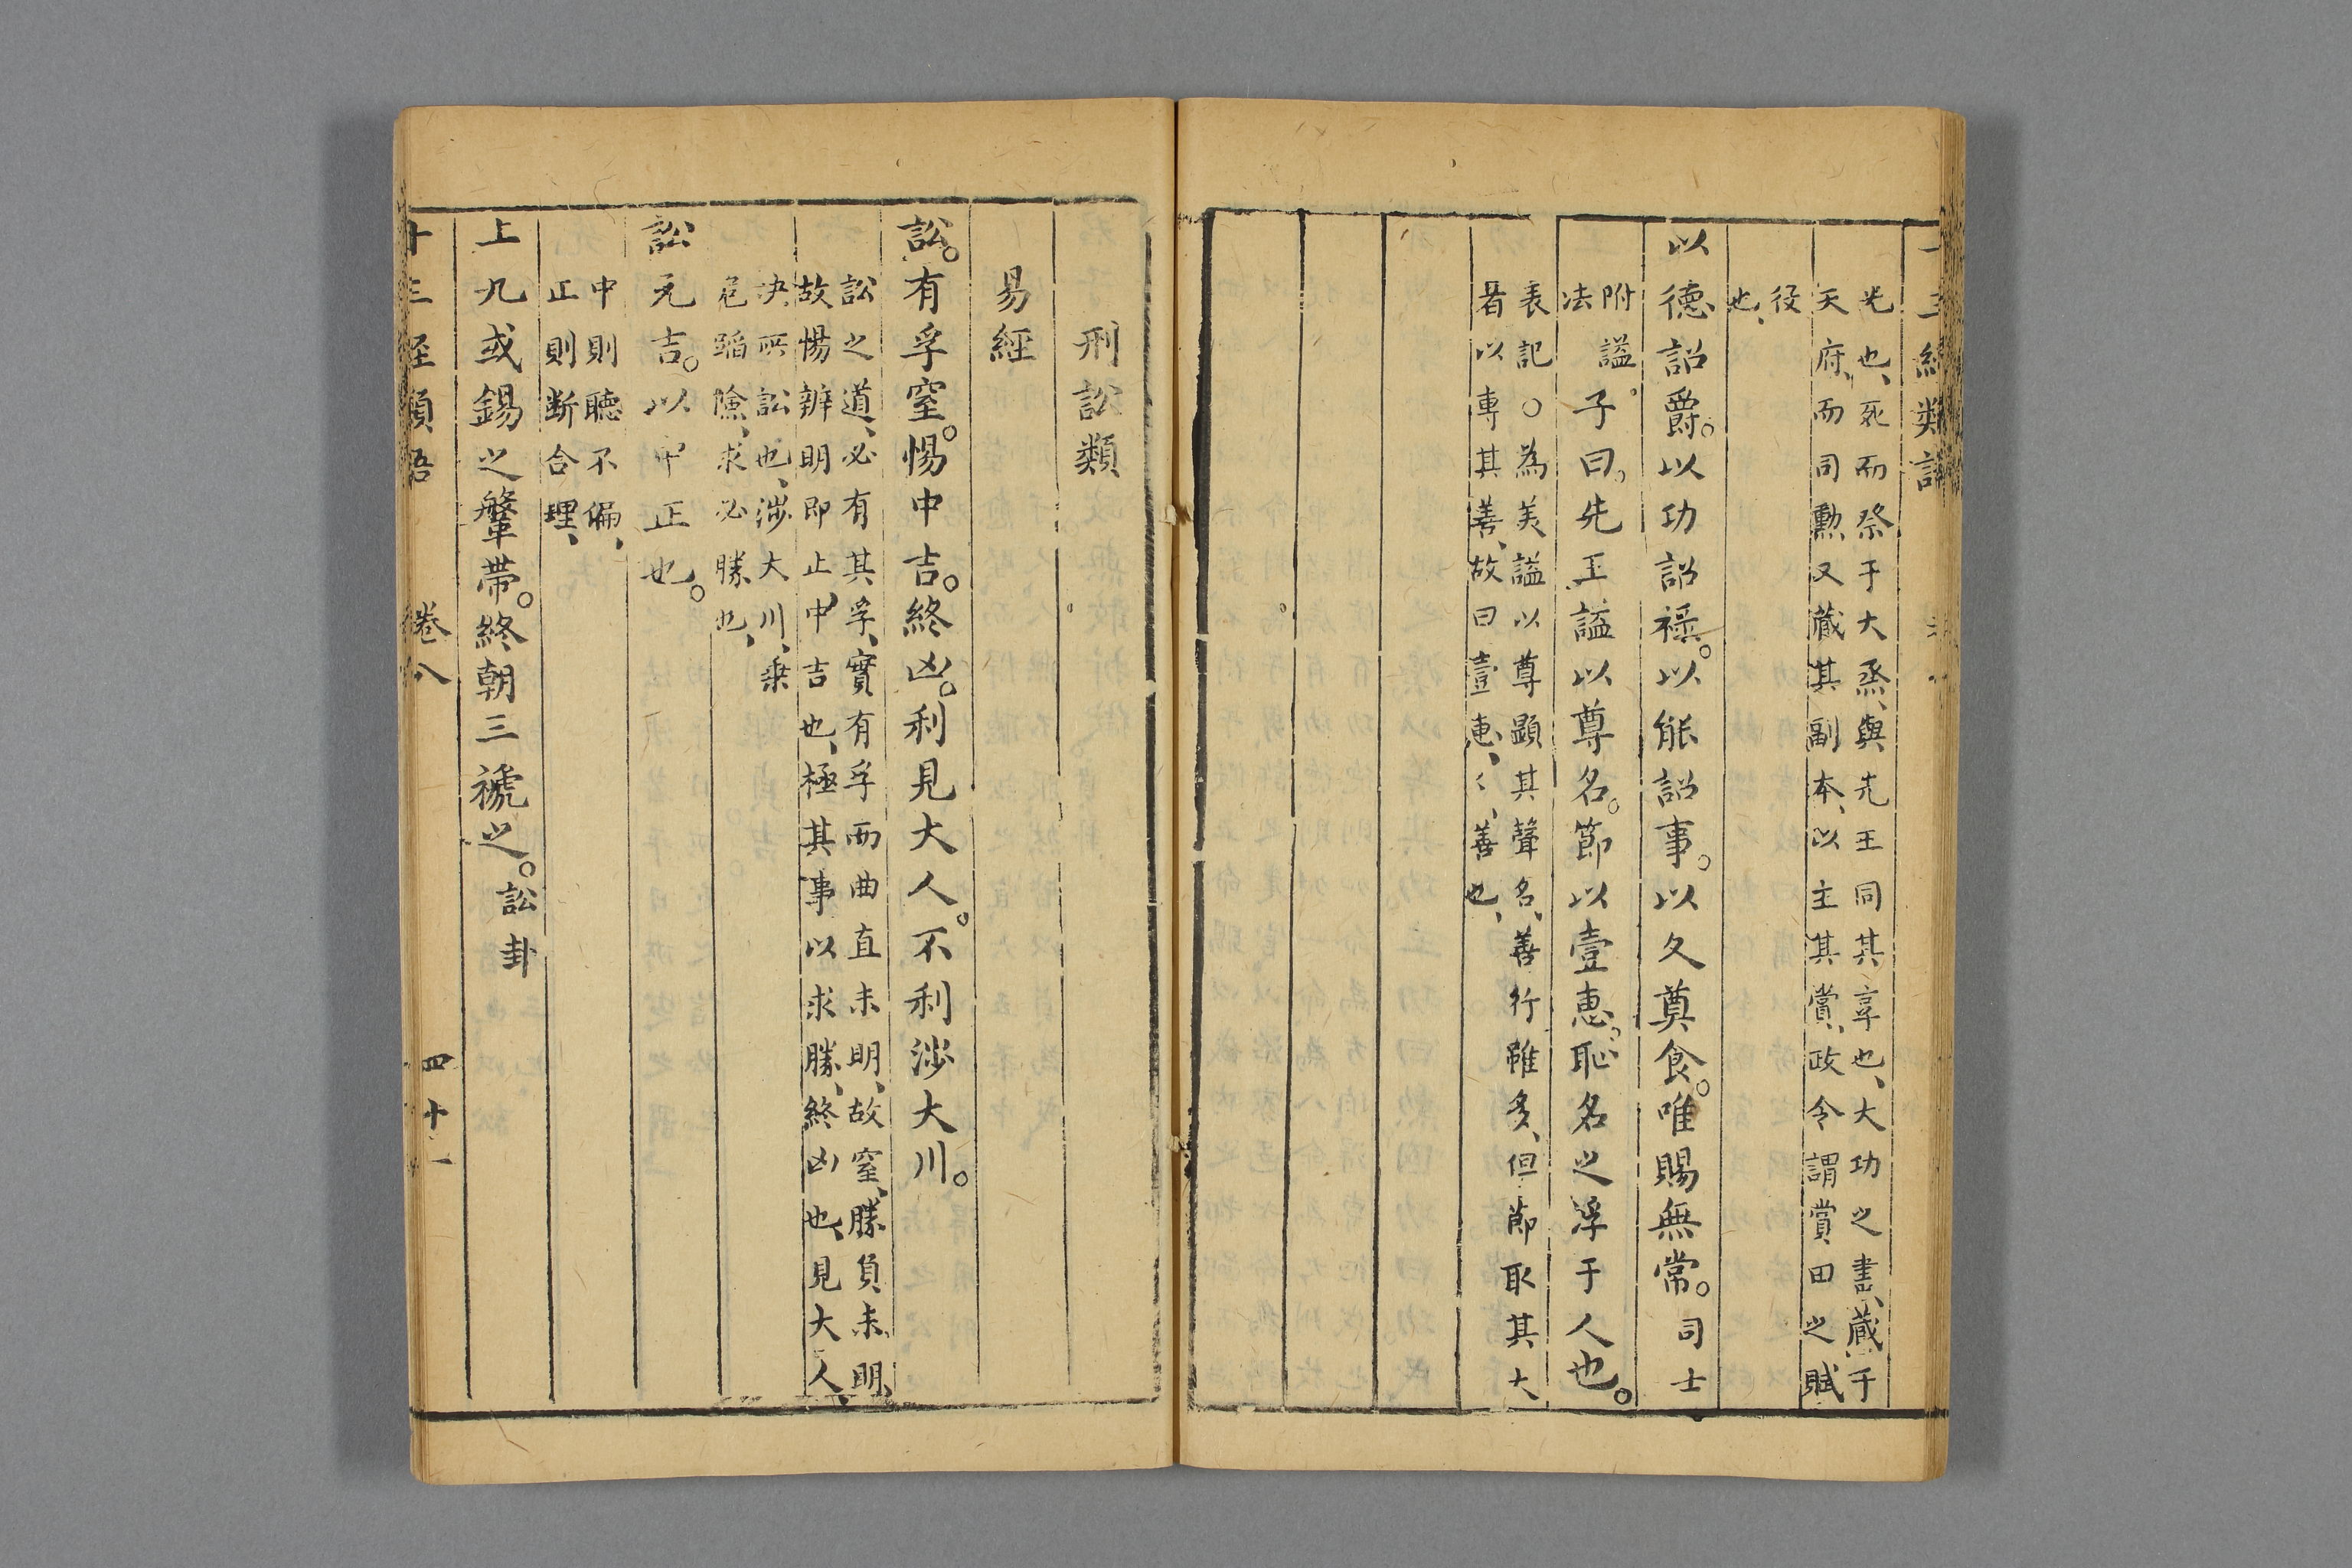 十三經類語
光也、死而祭于大烝、與先王同其享也、大功之書、藏于
天府、而司勲又藏其副本、以主其賞、政令謂賞田之賦
役
也、
以德詔爵。以功詔祿。以能詔事。以久奠食。唯賜無常。司士
附謚。子曰。先王謚以尊名。節以壹惠。恥名之浮于人也。
法
表記○為美謚以尊顯其聲名、善行雖多、但節取其大
者以專其善、故曰壹惠、〻、善也、
刑訟類
易經
訟。有孚窒。惕中吉。終凶。利見大人。不利涉大川。
訟之道、必有其孚、實有孚而曲直未明、故窒、勝負未明、
故惕辨明即止、中吉也、極其事以求勝、終凶也、見大人、
決所訟也、涉大川、乗
危蹈險、求必勝也、
訟元吉。以中正也。
中則聽不偏、
正則断合理、
上九或錫之鞶帶。終朝三褫之。訟卦
十三經類語 卷八 四十一